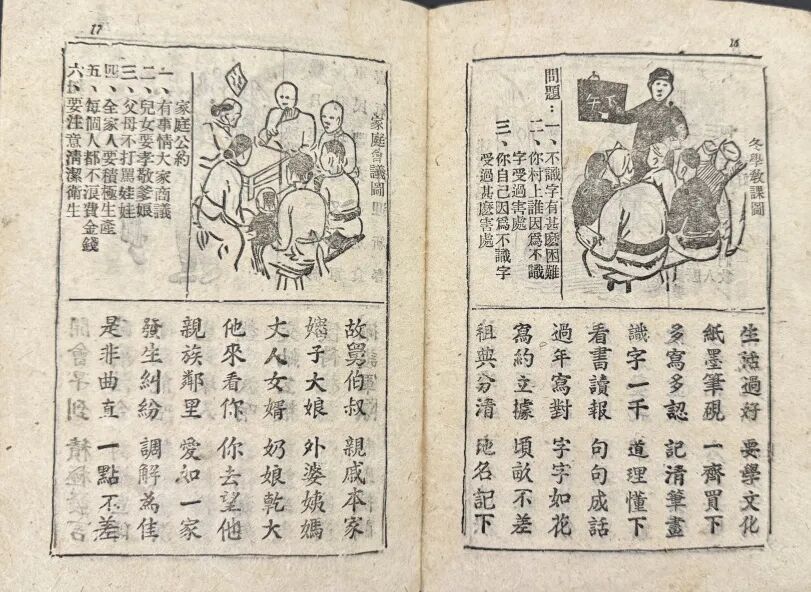 16
冬學教課圖
下午
問題：一、不識字有甚麼困難
二、你村上誰因為不識
字受過害處
三、你自己因為不識字
受過甚麼害處
生活過好 要學文化
紙墨筆硯 一齊買下
多寫多認 記清筆畫
識字一千 道理懂下
看書讀報 句句成話
過年寫對 字字如花
寫約立據 頃畝不差
組與分清 地名記下
17
家庭會議圖
家庭公約
一、有事情大家商議
二、兒女要孝敬爹娘
三、父母不打罵娃娃
四、全家人要積極生產
五、每個人都不浪費金錢
六、要注意清潔衛生
故舅伯叔 親戚本家
嬸子大娘 外婆姨媽
丈人女婿 奶娘乾大
他來看你 你去望他
親族鄰里 愛如一家
發生糾紛 調解為佳
是非曲直 一點不差